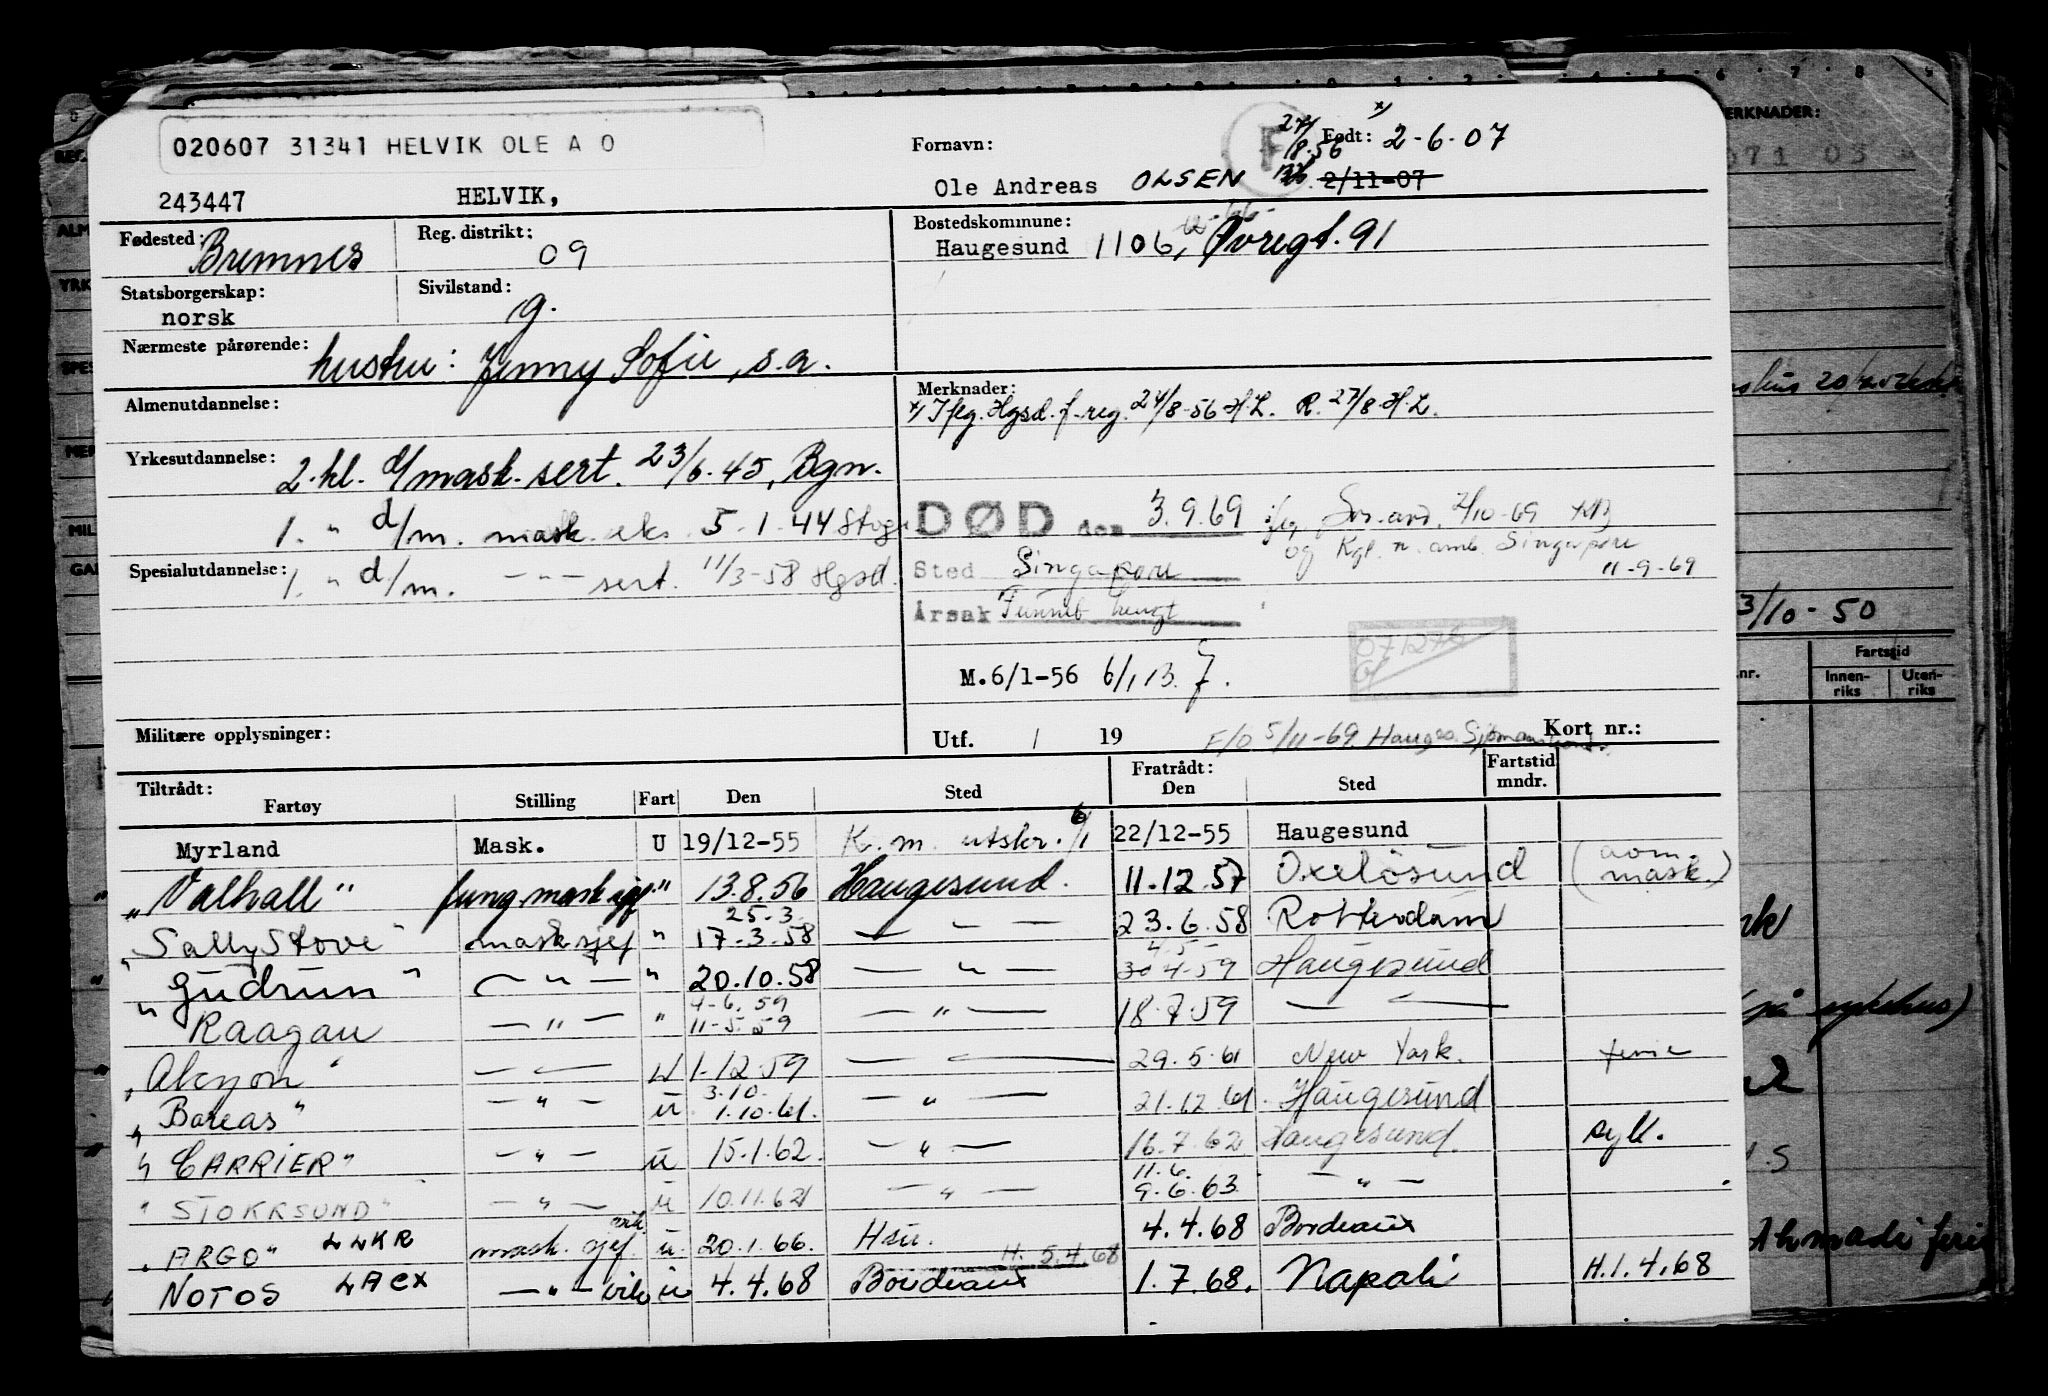 020607 31341 HELVIK OLE A O
Fornavn:
27/8.56
x) Født: 2-6-07
F
243447 HELVIK, Ole Andreas OLSEN 2/11-07
Fødested: Bremnes
Reg. distrikt: 09
Bostedskommune: Haugesund 1106, Øvregt. 91
Statsborgerskap: norsk
Sivilstand: g.
Nærmeste pårørende: hustru: Jenny Sofie, s.a.
Almenutdannelse:
Merknader:
x) Iflg. Hgsd. f-reg. 24/8-56 H.L. R. 27/8-H.L.
Yrkesutdannelse: 2.kl. d/mask. sert. 23/6.45, Bgn.
1. " d/m. mask. eks. 5-1-44 Stvgr
Spesialutdannelse: 1. " d/m. — " — sert. 11/3-58 Hgsd.
DØD den 3.9.69 iflg.
og Kgl. n. amb. Singapore
11-9-69
Sted Singapore
Årsak Funnet hengt
071274
M.6/1-56 6/1 13. 7.
Militære opplysninger:
Utf. / 19
F/O 5/11-69 Hauges. Sjømannskont.
Kort nr.:
Tiltrådt: Fartøy Stilling Fart Den Sted Fratrådt: Den Sted Fartstid mndr.
Myrland Mask. U 19/12-55 K. m. utskr. 6/1 22/12-55 Haugesund
" "Valhall" fung. mask sjef " 13.8.56 Haugesund. 11.12.57 Oxelösund (aom. mask.)
25.3.
"Sally Stove" mask sjef " 17-3.58 — " — 23.6.58 Rotterdam
4-5-
" "Gudrun" — " — " 20.10.58 — " — 30 4-59 Haugesund
4-6.59
" Raagan — " — " 11-5.59 — " — 18.7.59 — " —
"Alcyon" — " — U 1-12.59 — " — 29.5.61 New York. ferie
3.10.
"Boreas" — " — u 1.10.61. — " — 21.12.61. Haugesund
" CARRIER" — " — u 15.1.62. — " — 16.7.62 Haugesund. syk.
11.6.
" STOKKSUND" — " — u 10.11.62 — " — 9.6.63. — " —
"ARGO" LLKR mask. sjef. vik u. 20.1.66. Hsu. 4.4.68 Bordeaux
H. 5.4.68
NOTOS LACX — " — vik u 4.4.68 Bordeaux 1.7.68. Napoli H.1.4.68
ERKNADER:
071 03
3/10-50
Fartstid
.nr. Innen-riks Uten-riks
(på sykehus)
REG
ALM
YRK
SPES
MER
MIL